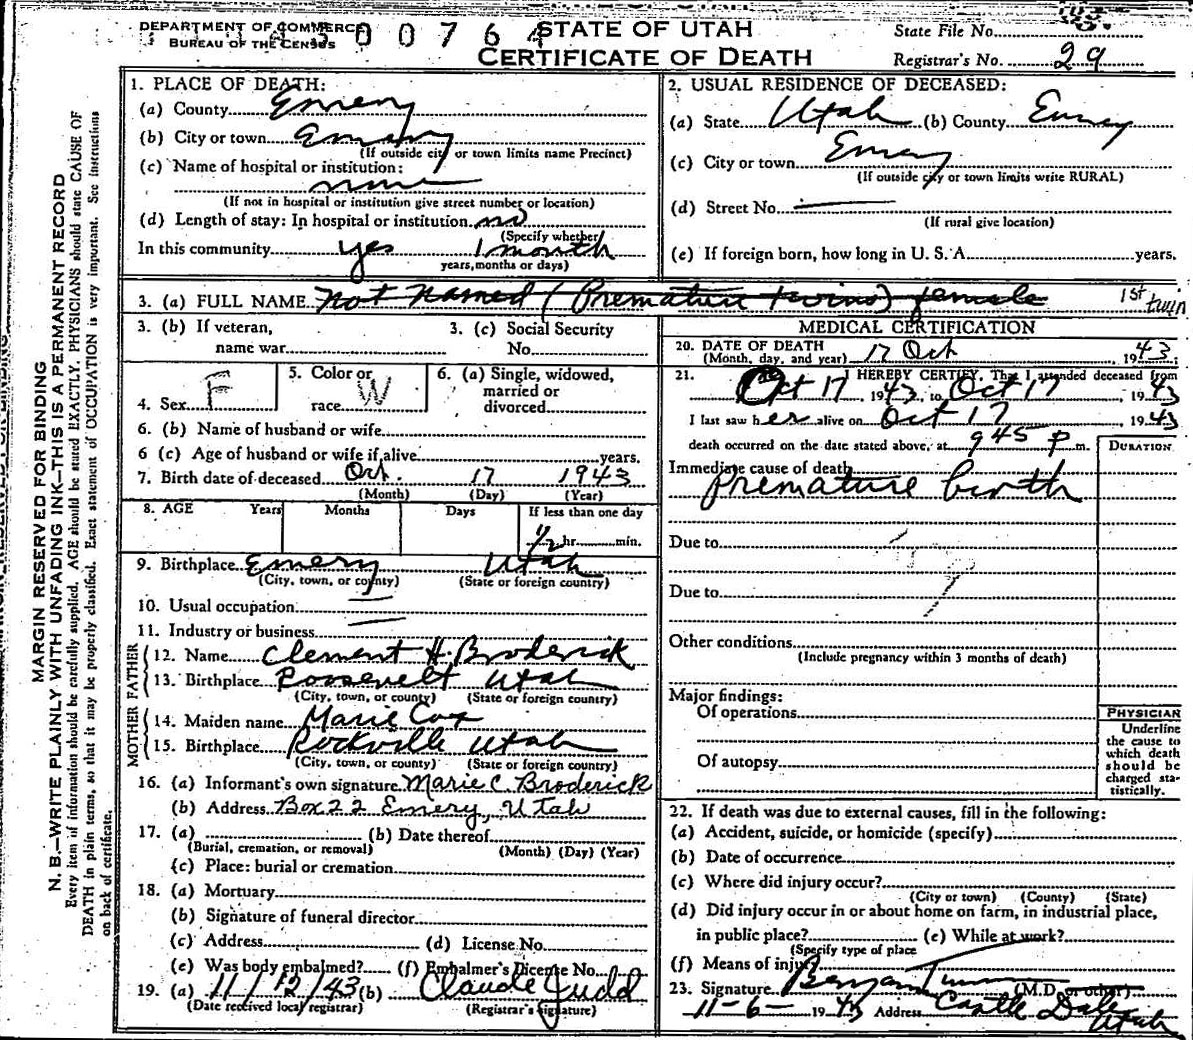 DEPARTMENT OF COMMERCE
BUREAU OF THE CENSUS
0 0 7 6 4
STATE OF UTAH
CERTIFICATE OF DEATH
State File No.
Registrar's No. 29
MARGIN RESERVED FOR BINDING
N. B.—WRITE PLAINLY WITH UNFADING INK—THIS IS A PERMANENT RECORD
Every item of information should be carefully supplied. AGE should be stated EXACTLY. PHYSICIANS should state CAUSE OF
DEATH in plain terms, so that it may be properly classified. Exact statement of OCCUPATION is very important. See instructions
on back of certificate.
1. PLACE OF DEATH:
(a) County Emery
(b) City or town Emery
(If outside city or town limits name Precinct)
(c) Name of hospital or institution:
none
(If not in hospital or institution give street number or location)
(d) Length of stay: In hospital or institution no
(Specify whether
In this community yes 1 month
years, months or days)
2. USUAL RESIDENCE OF DECEASED:
(a) State Utah (b) County Emery
(c) City or town Emery
(If outside city or town limits write RURAL)
(d) Street No.
(If rural give location)
(e) If foreign born, how long in U. S. A. years.
3. (a) FULL NAME Not Named (Premature twins) female 1st twin
3. (b) If veteran,
name war
3. (c) Social Security
No.
4. Sex F
5. Color or
race W
6. (a) Single, widowed,
married or
divorced
6. (b) Name of husband or wife
6 (c) Age of husband or wife if alive years.
7. Birth date of deceased Oct. 17 1943
(Month) (Day) (Year)
8. AGE Years Months Days If less than one day
1/2 hr. min.
9. Birthplace Emery Utah
(City, town, or county) (State or foreign country)
10. Usual occupation
11. Industry or business
FATHER
12. Name Clement H. Broderick
13. Birthplace Roosevelt Utah
(City, town, or county) (State or foreign country)
MOTHER
14. Maiden name Marie Cox
15. Birthplace Rockville Utah
(City, town, or county) (State or foreign country)
16. (a) Informant's own signature Marie C. Broderick
(b) Address Box 22 Emery, Utah
17. (a) (b) Date thereof
(Burial, cremation, or removal) (Month) (Day) (Year)
(c) Place: burial or cremation
18. (a) Mortuary
(b) Signature of funeral director
(c) Address (d) License No.
(e) Was body embalmed? (f) Embalmer's License No.
19. (a) 11/12/43 (b) Claude Judd
(Date received local registrar) (Registrar's signature)
MEDICAL CERTIFICATION
20. DATE OF DEATH
(Month, day, and year) 17 Oct, 1943;
21. I HEREBY CERTIFY, That I attended deceased from
Oct 17, 1943, to Oct 17, 1943
I last saw her alive on Oct 17, 1943
death occurred on the date stated above, at 9 45 P m.
DURATION
Immediate cause of death
Premature birth
Due to
Due to
Other conditions
(Include pregnancy within 3 months of death)
Major findings:
Of operations
Of autopsy
PHYSICIAN
Underline
the cause to
which death
should be
charged sta-
tistically.
22. If death was due to external causes, fill in the following:
(a) Accident, suicide, or homicide (specify)
(b) Date of occurrence
(c) Where did injury occur?
(City or town) (County) (State)
(d) Did injury occur in or about home on farm, in industrial place,
in public place? (e) While at work?
(Specify type of place
(f) Means of injury
23. Signature (M.D. or other)
11-6- 1943 Address Castle Dale
Utah